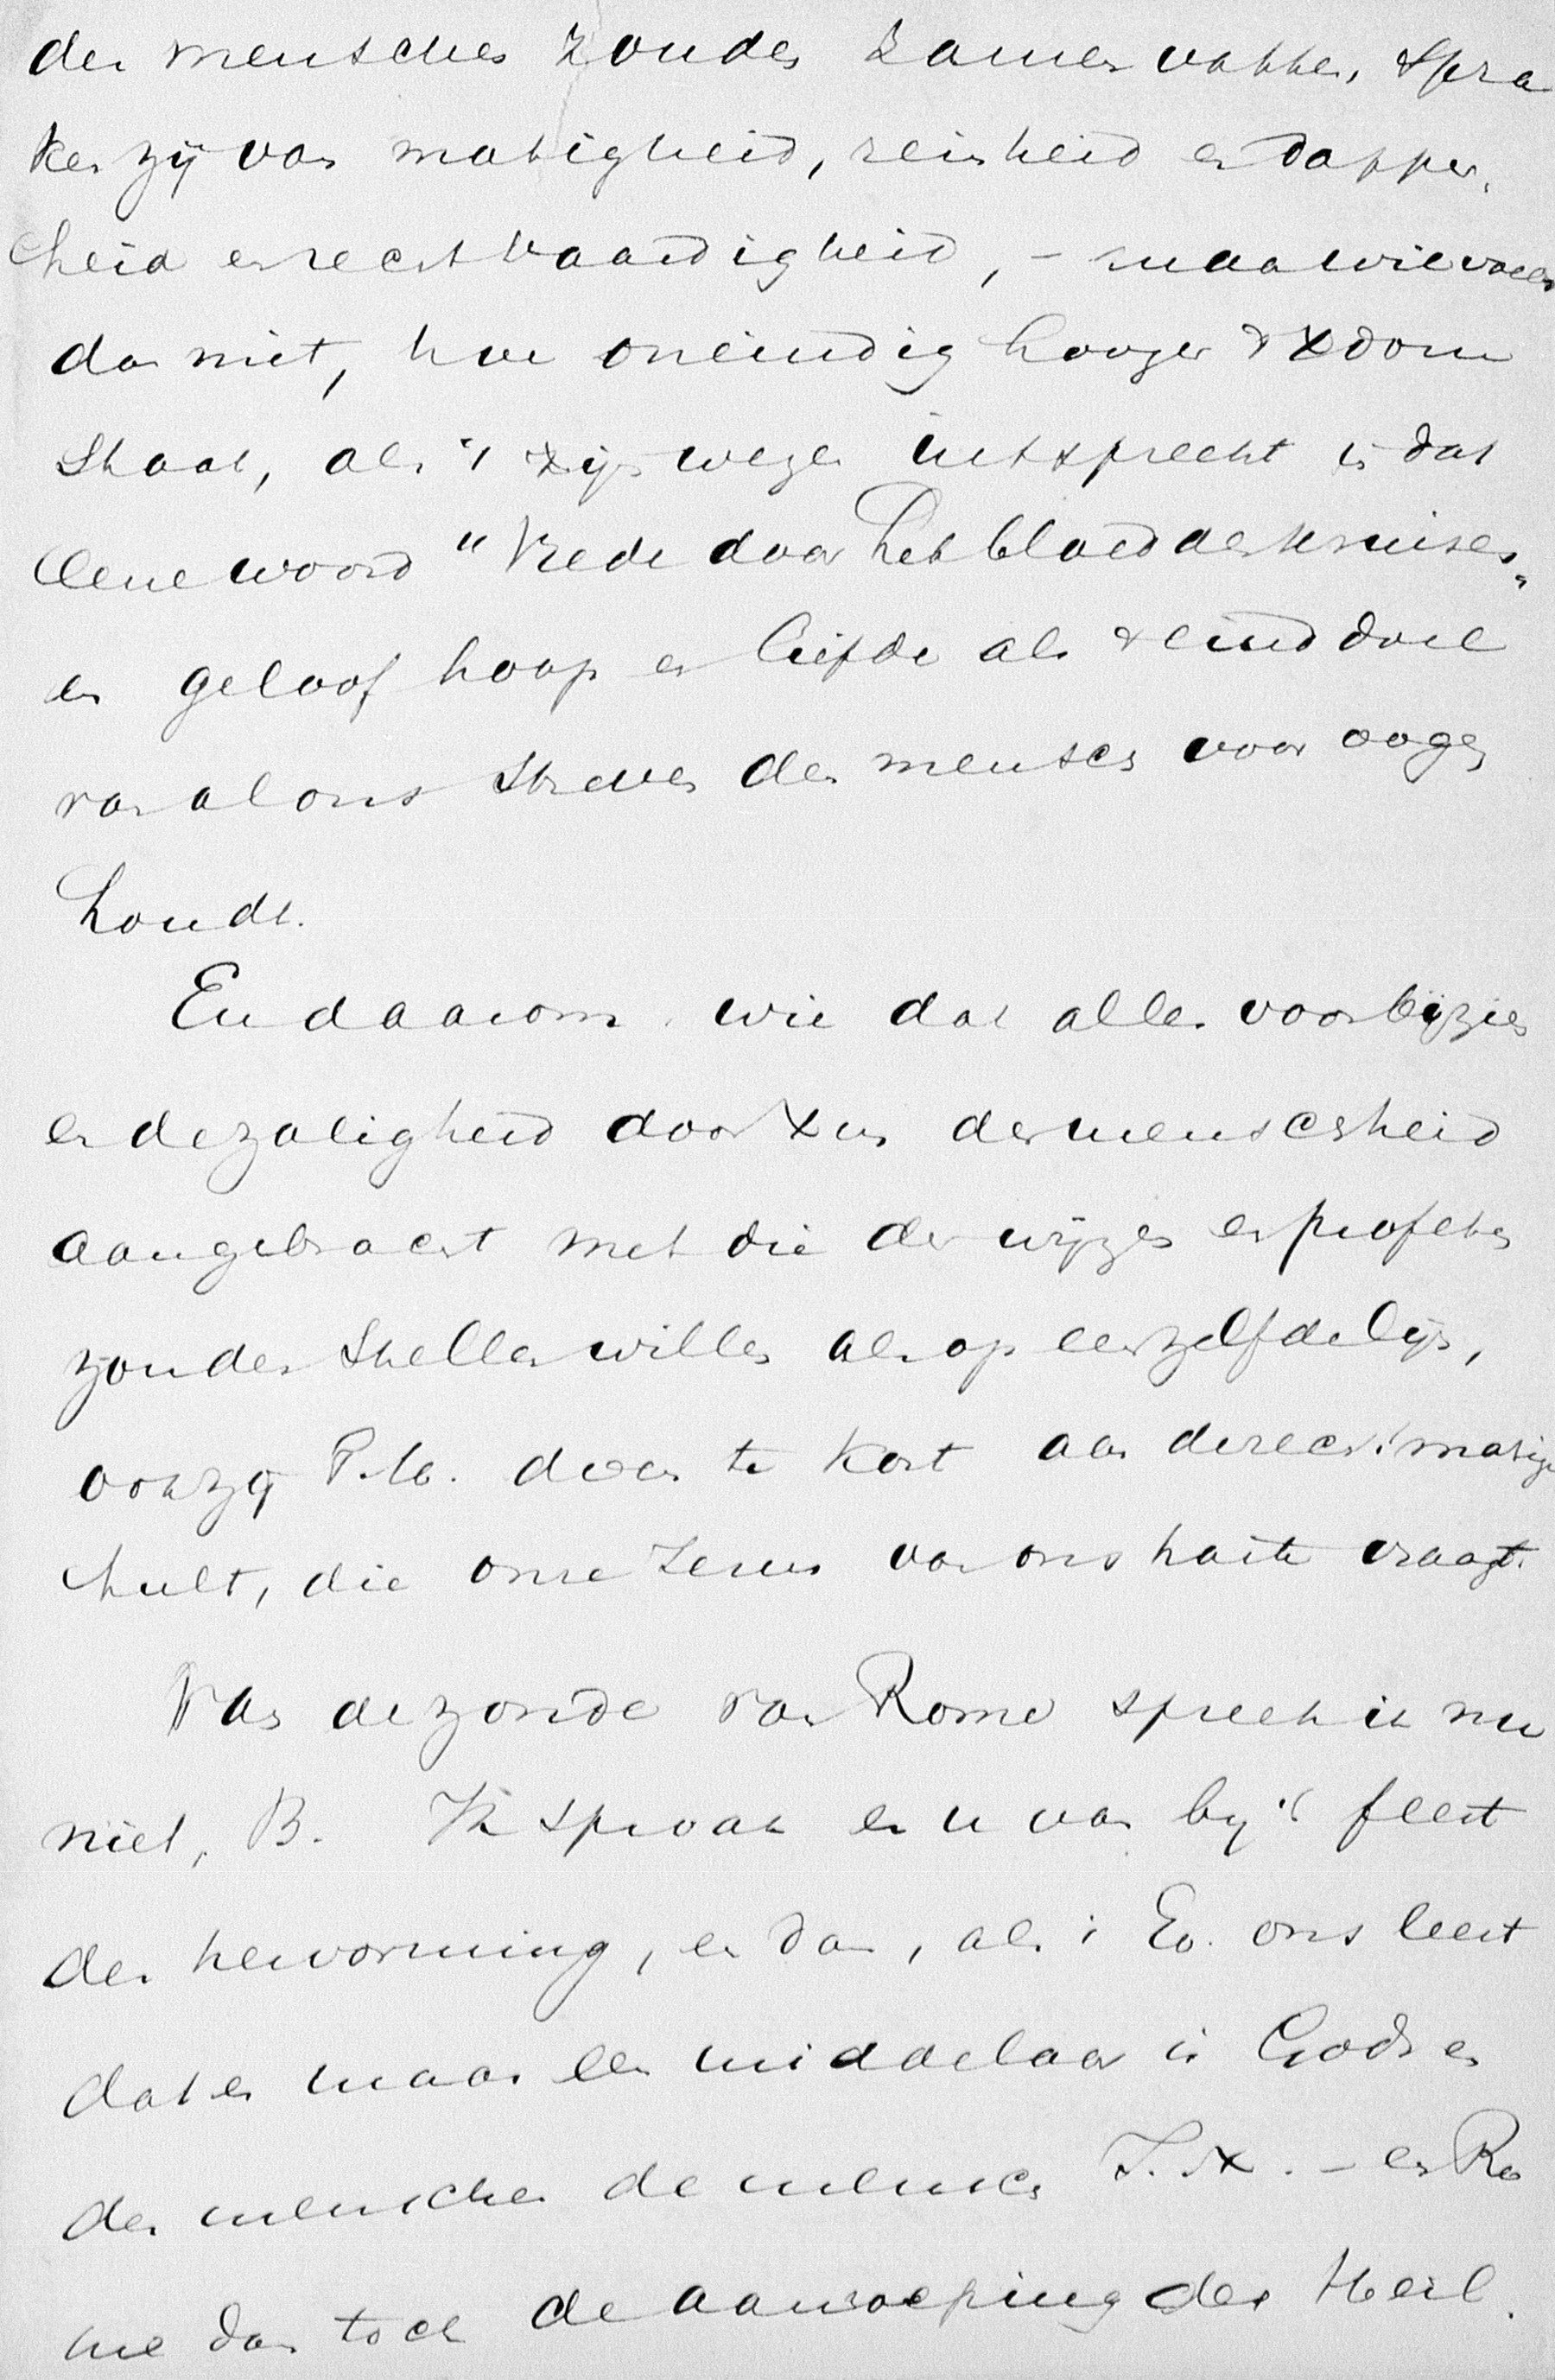 der menschen zonden zamenvatten, spra
ken zij van matigheid, reinheid en dapper-
heid en rechtvaardigheid, – maar wie voelt
dan niet, hoe oneindig hooger 't Xdom
staat, als 't zijn wezen uitspreekt in dat
eene woord "Vrede door het bloed des kruises"
en geloof hoop en liefde als 't einddoel
van al ons streven den mensch voor oogen
houdt.
En daarom wie dat alles voorbijzien
en de zaligheid door Xus der menschheid
aangebracht met die der wijzen en profeten
zouden stellen willen als op eenzelfde lijn,
ook zij P.M. doen te kort aan de rechtmatige
hulde, die onze Jezus van ons harte vraagt.
Van de zonde van Rome spreek ik nu
niet, B. Ik sprak er u van bij 't feest
der hervorming, en dan, als 't Ev. ons leert
dat er maar een middelaar is Gods en
der menschen de mensch J. X. – en Ro
me dan toch de aanroeping der Heil.